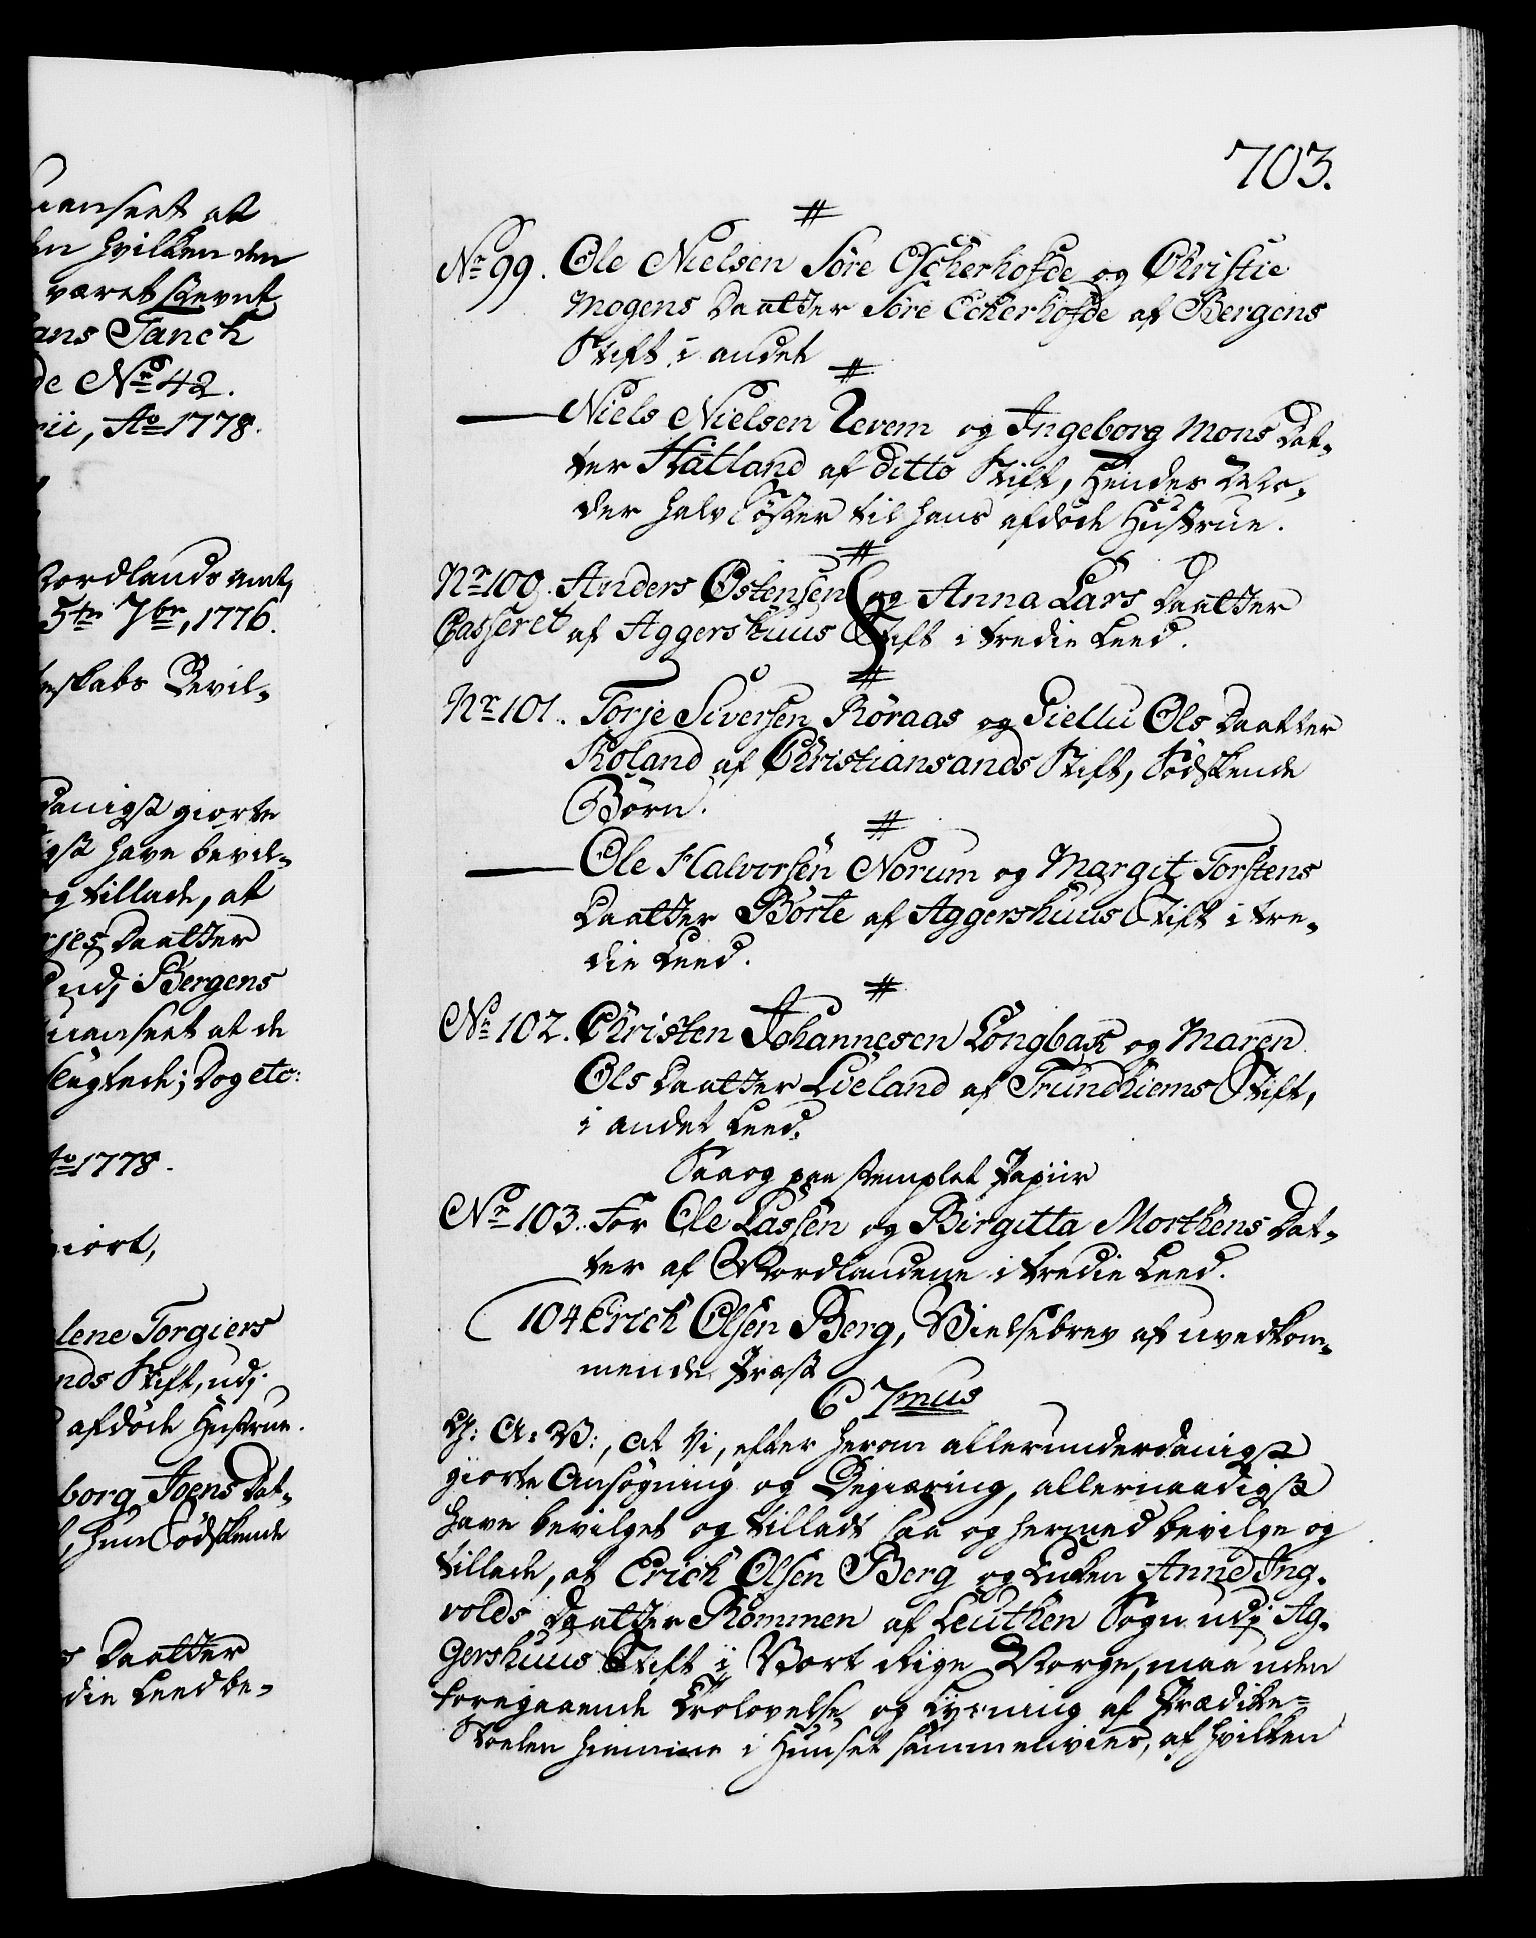 uanseet at
den hvilken den
været stevnt
Hans Tanch
de No 42.
rii, Ao 1778.
Nordlands Amt,
5te 7br, 1776.
teskabs Bevil-
danigst giorte
igst have bevil-
og tillade, at
rjes Daatter
udj Bergens
uanseet at de
Slægtede; Dog etc:
Ao 1778.
giort,
lene Torgiers
nds Stift, udj
afdöde Hustrue.
borg Joens Dat-
, hun Södskende
s Daatter
die Leed be-
703.
#
No 99. Ole Nielsen Söre Eckerhofde og Christie
Mogens Daatter Söre Eckerhofde af Bergens
Stift i andet
#
— Niels Nielsen Terem og Ingeborg Mons Dat-
ter Hatland af ditto Stift, Hendes Mo-
der halv Söster til hans afdöde Hustrue.
#
Nr 100. Anders Östensen og Anna Lars Daatter
Casseret af Aggershuus Stift i tredie Leed.
#
Nr 101. Torje Siversen Röraas og Siellu Ols Daatter
Roland af Christiansands Stift, Södskende
Börn.
#
— Ole Halvorsen Norum og Margit Torstens
Daatter Börte af Aggershuus Stift i tre-
die Leed.
#
No 102. Christen Johannesen Longbak og Maren
Ols Daatter Lieland af Trundhiems Stift,
i andet Leed.
Saa og paa stemplet Papiir
No 103. For Ole Lassen og Birgitta Morthens Dat-
ter af Nordlandene i tredie Leed.
104 Erich Olsen Berg, Vielsebrev af uvedkom-
mende Præst
C 7mus
G: A: V:, at Vi, efter herom allerunderdanigst
giorte Ansögning og Begiæring, allernaadigst
have bevilget og tilladt saa og hermed bevilge og
tillade, at Erich Olsen Berg og Enken Anne Ing-
volds Daatter Rommen af Leuthen Sogn udj Ag-
gershuus Stift i Vort Rige Norge, maa uden
foregaaende Trolovelse og Lysning af Prædike-
Stoelen hiemme i Huuset sammenvies, af hvilken